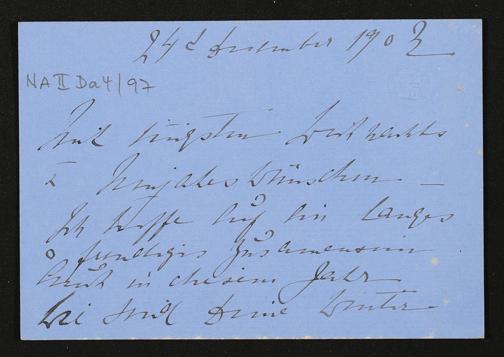 24 Dezember 1902
NA II Da4/97
Mit innigsten Weihnachts
& Neujahrs Wünschen —
Ich hoffe auf ein langes
freudiges Zusamensein
in diesem Jahr
Deine